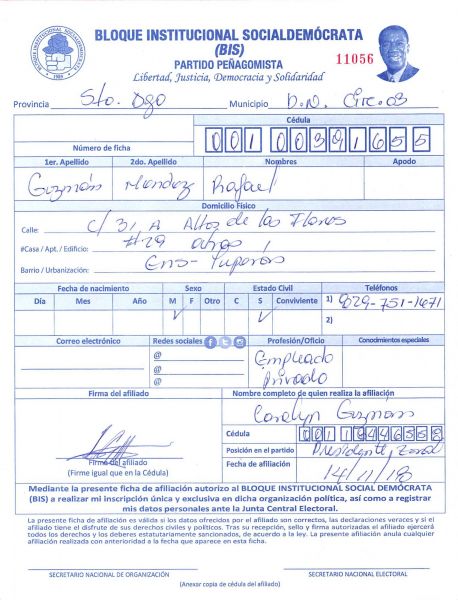 BLOQUE INSTITUCIONAL SOCIALDEMÓCRATA
(BIS)
PARTIDO PEÑAGOMISTA
11056
Libertad, Justicia, Democracia y Solidaridad
Provincia Sto. Dgo Municipio D.N. Circ. 03
Cédula
Número de ficha 001 0039165 5
1er. Apellido 2do. Apellido Nombres Apodo
Guzmán Mendez Rafael
Domicilio Físico
Calle: C/ 31, A Altos de las Flores
#Casa / Apt. / Edificio: #29 atras
Barrio / Urbanización: Ens-
Fecha de nacimiento Sexo Estado Civil Teléfonos
Día Mes Año M F Otro C S Conviviente 1) 829-751-1671
2)
Correo electrónico Redes sociales Profesión/Oficio Conocimientos especiales
@
@
@
Empleado
Privado
Firma del afiliado Nombre completo de quien realiza la afiliación
Carolyn Guzmán
Cédula 001 1844655 8
Posición en el partido Presidente Zonal
Fecha de afiliación 14/11/18
Firma del afiliado
(Firme igual que en la Cédula)
Mediante la presente ficha de afiliación autorizo al BLOQUE INSTITUCIONAL SOCIAL DEMÓCRATA
(BIS) a realizar mi inscripción única y exclusiva en dicha organización política, así como a registrar
mis datos personales ante la Junta Central Electoral.
La presente ficha de afiliación es válida si los datos ofrecidos por el afiliado son correctos, las declaraciones veraces y si el
afiliado tiene el disfrute de sus derechos civiles y políticos. Tras su recepción, sello y firma autorizadas el afiliado ejercerá
todos los derechos y los deberes estatutariamente sancionados, de acuerdo a la ley. La presente afiliación anula cualquier
afiliación realizada con anterioridad a la fecha que aparece en esta ficha.
SECRETARIO NACIONAL DE ORGANIZACIÓN SECRETARIO NACIONAL ELECTORAL
(Anexar copia de cédula del afiliado)